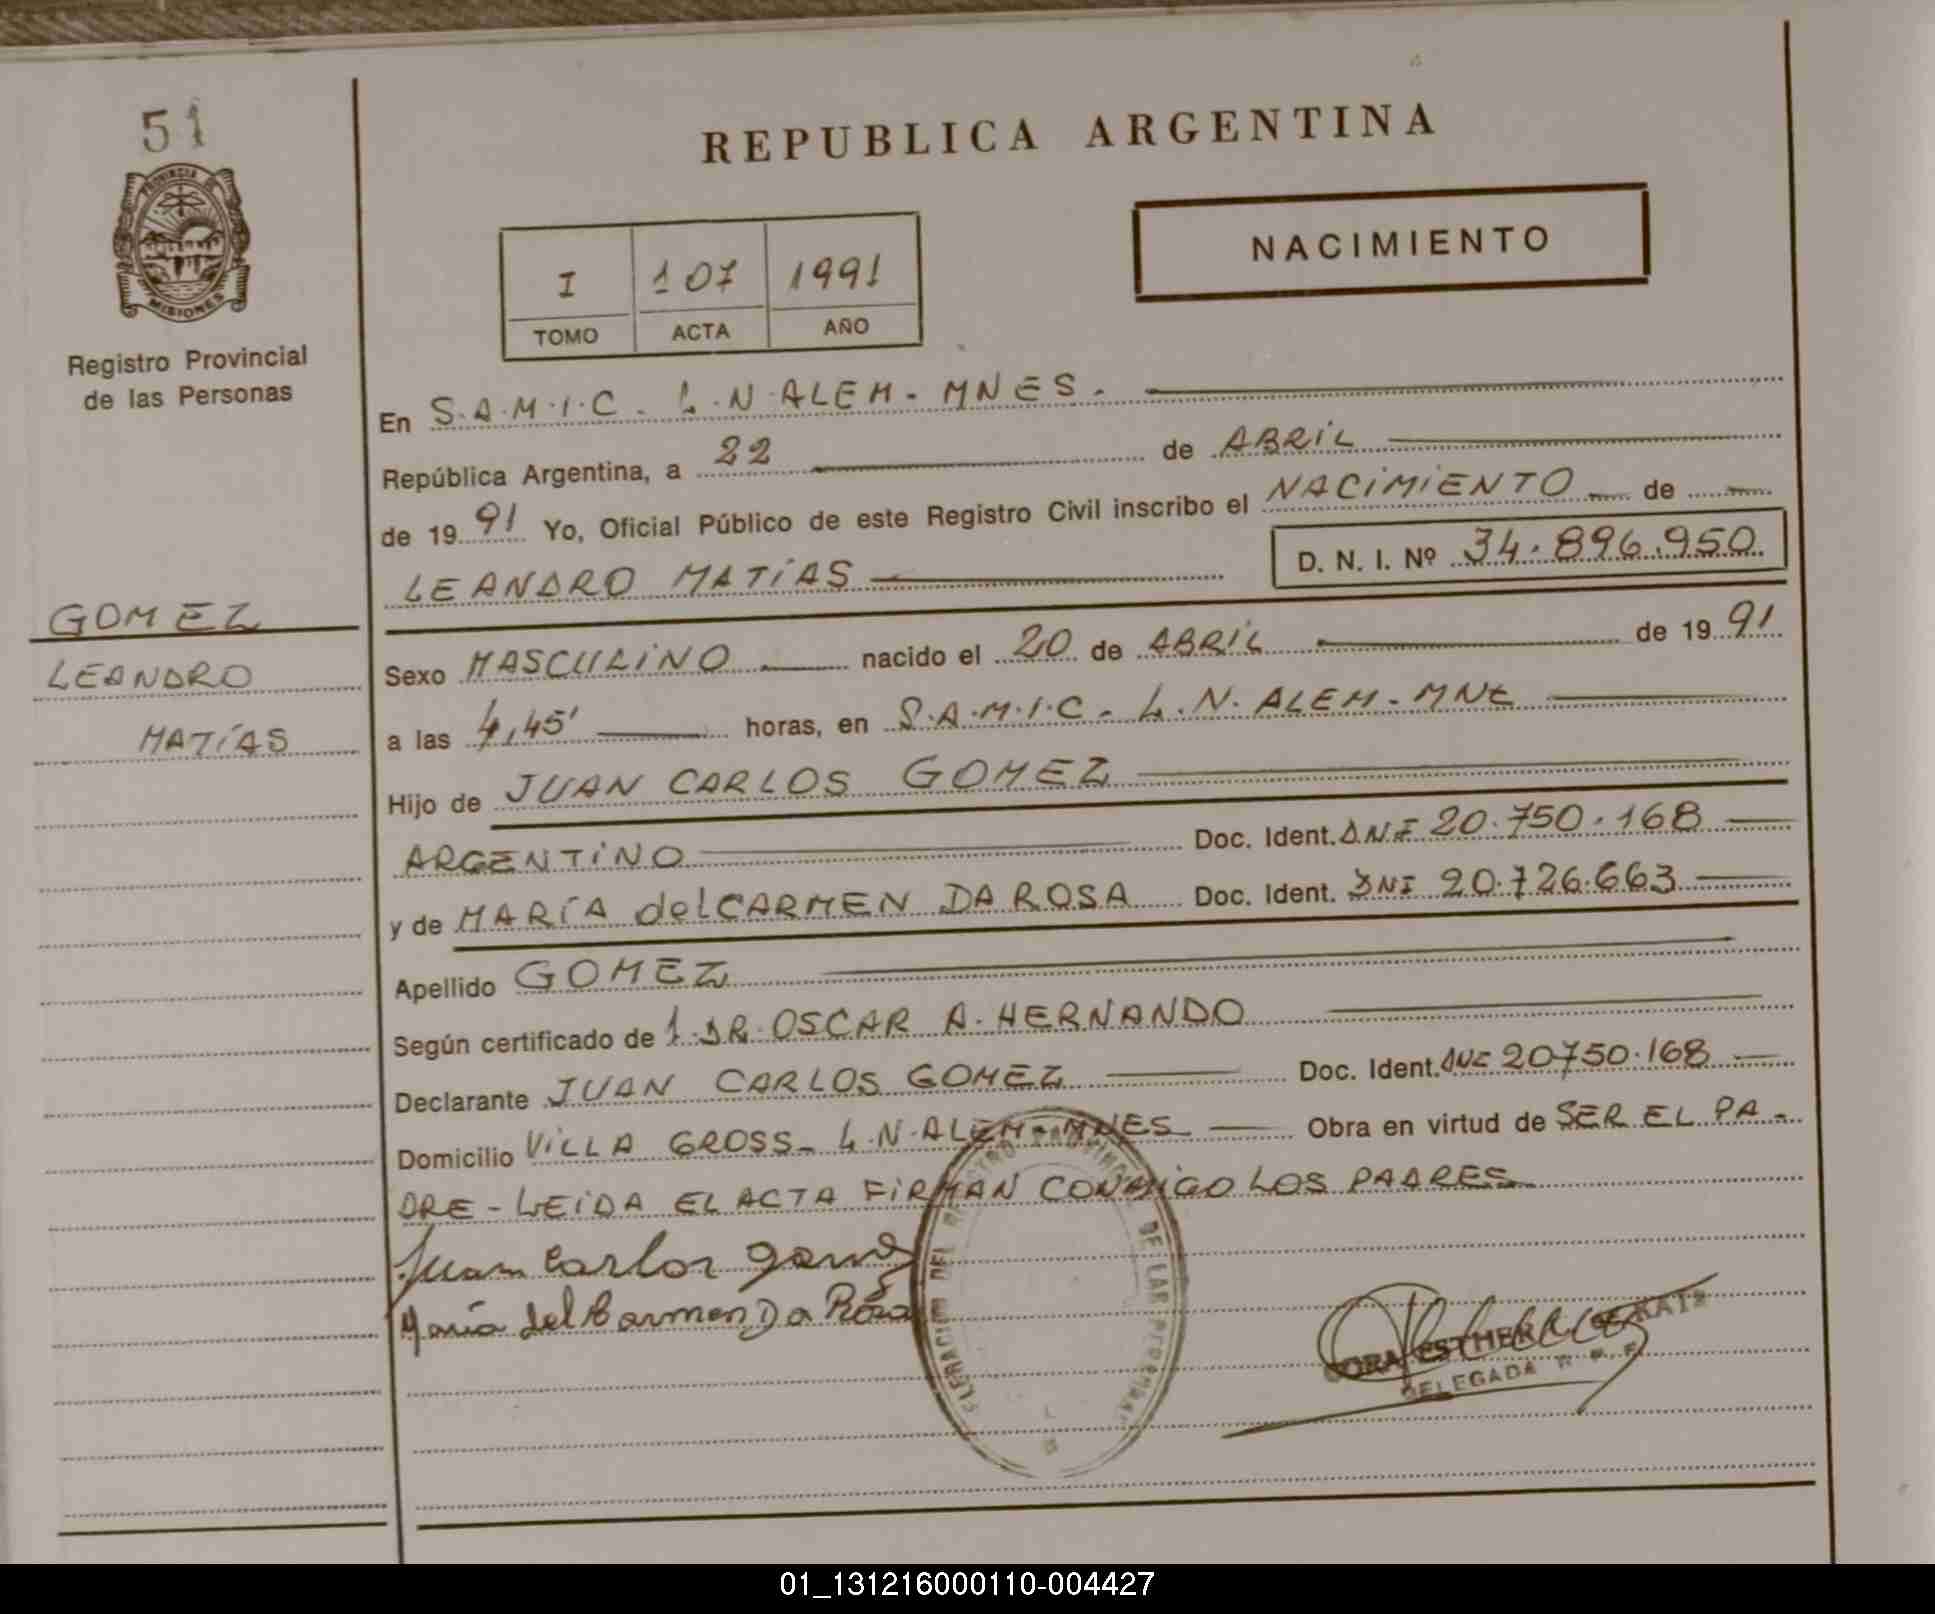 51
PROVINCIA DE
MISIONES
Registro Provincial
de las Personas
GOMEZ
LEANDRO
MATÍAS
REPUBLICA ARGENTINA
NACIMIENTO
I 107 1991
TOMO ACTA AÑO
En S.A.M.I.C. L.N.ALEM. MNES.
República Argentina, a 22 de ABRIL
de 1991 Yo, Oficial Público de este Registro Civil inscribo el NACIMIENTO de
LEANDRO MATÍAS D. N. I. Nº 34.896.950
Sexo MASCULINO nacido el 20 de ABRIL de 1991
a las 4,45' horas, en S.A.M.I.C. L.N. ALEM. MNE
Hijo de JUAN CARLOS GOMEZ
ARGENTINO Doc. Ident. DNI 20.750.168
y de MARÍA del CARMEN DA ROSA Doc. Ident. DNI 20.726.663
Apellido GOMEZ
Según certificado de 1.DR.OSCAR A.HERNANDO
Declarante JUAN CARLOS GOMEZ Doc. Ident. DNI 20750.168
Domicilio VILLA GROSS_ L.N.ALEM-MNES Obra en virtud de SER EL PA-
DRE - LEIDA EL ACTA FIRMAN CONMIGO LOS PADRES
Juan Carlos Gomez
María del Carmen Da Rosa
DEL REGISTRO PROVINCIAL DE LAS PERSONAS
ESTHER DE KATZ
DELEGADA R. P. P.
01_131216000110-004427